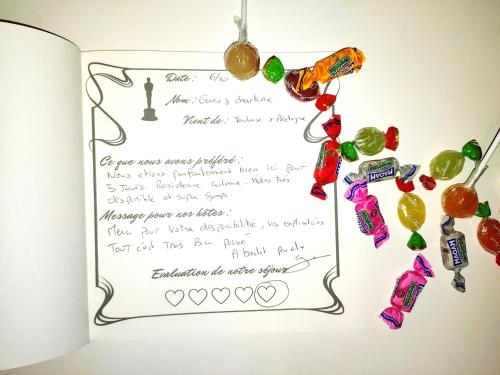 Date: 6/10
Nom: & charline
Vient de: Toulouse & Bretagne
Ce que nous avons préféré:
Nous etions parfaitement bien ici pour
3 Jours. Residence calme. Hotes très
disponible et Super Sympa
Message pour nos hôtes:
Merci pour votre disponibilité, vos explications
Tout c'est Tres Bien passé
A bientot
Evaluation de notre séjour
MAOAM
MAOAM